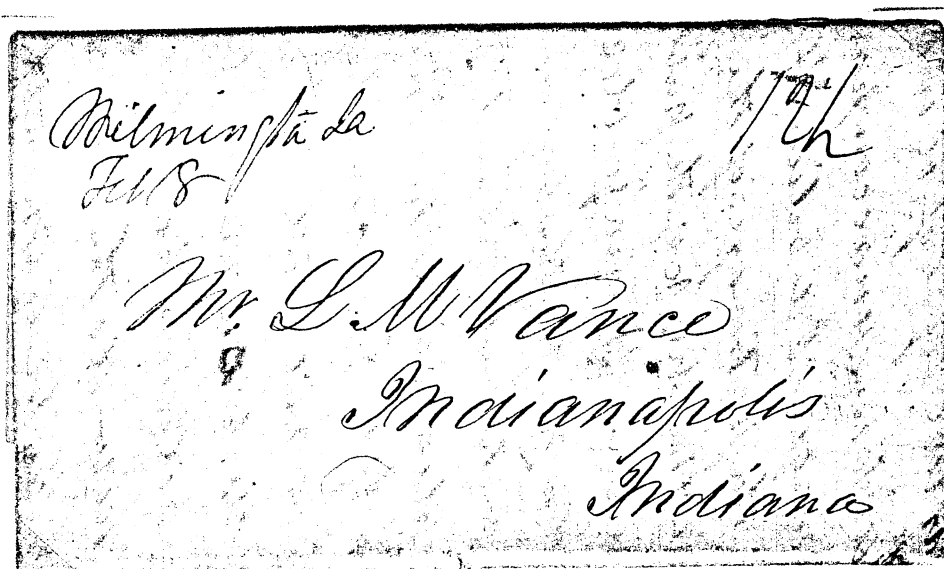 Wilmington Ia
Feb 8
Mr. L. M Vance
Indianapolis
Indiana